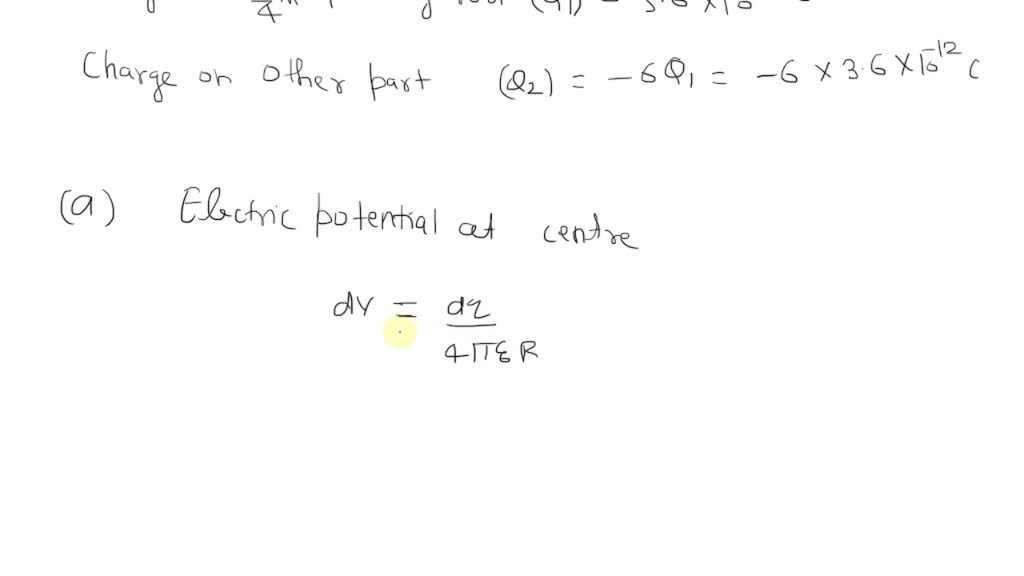 Charge on other part (Q2) = -6Q1 = -6 × 3.6 × 10^-12 C
(a) Electric potential at centre
dV = dq
4πε R